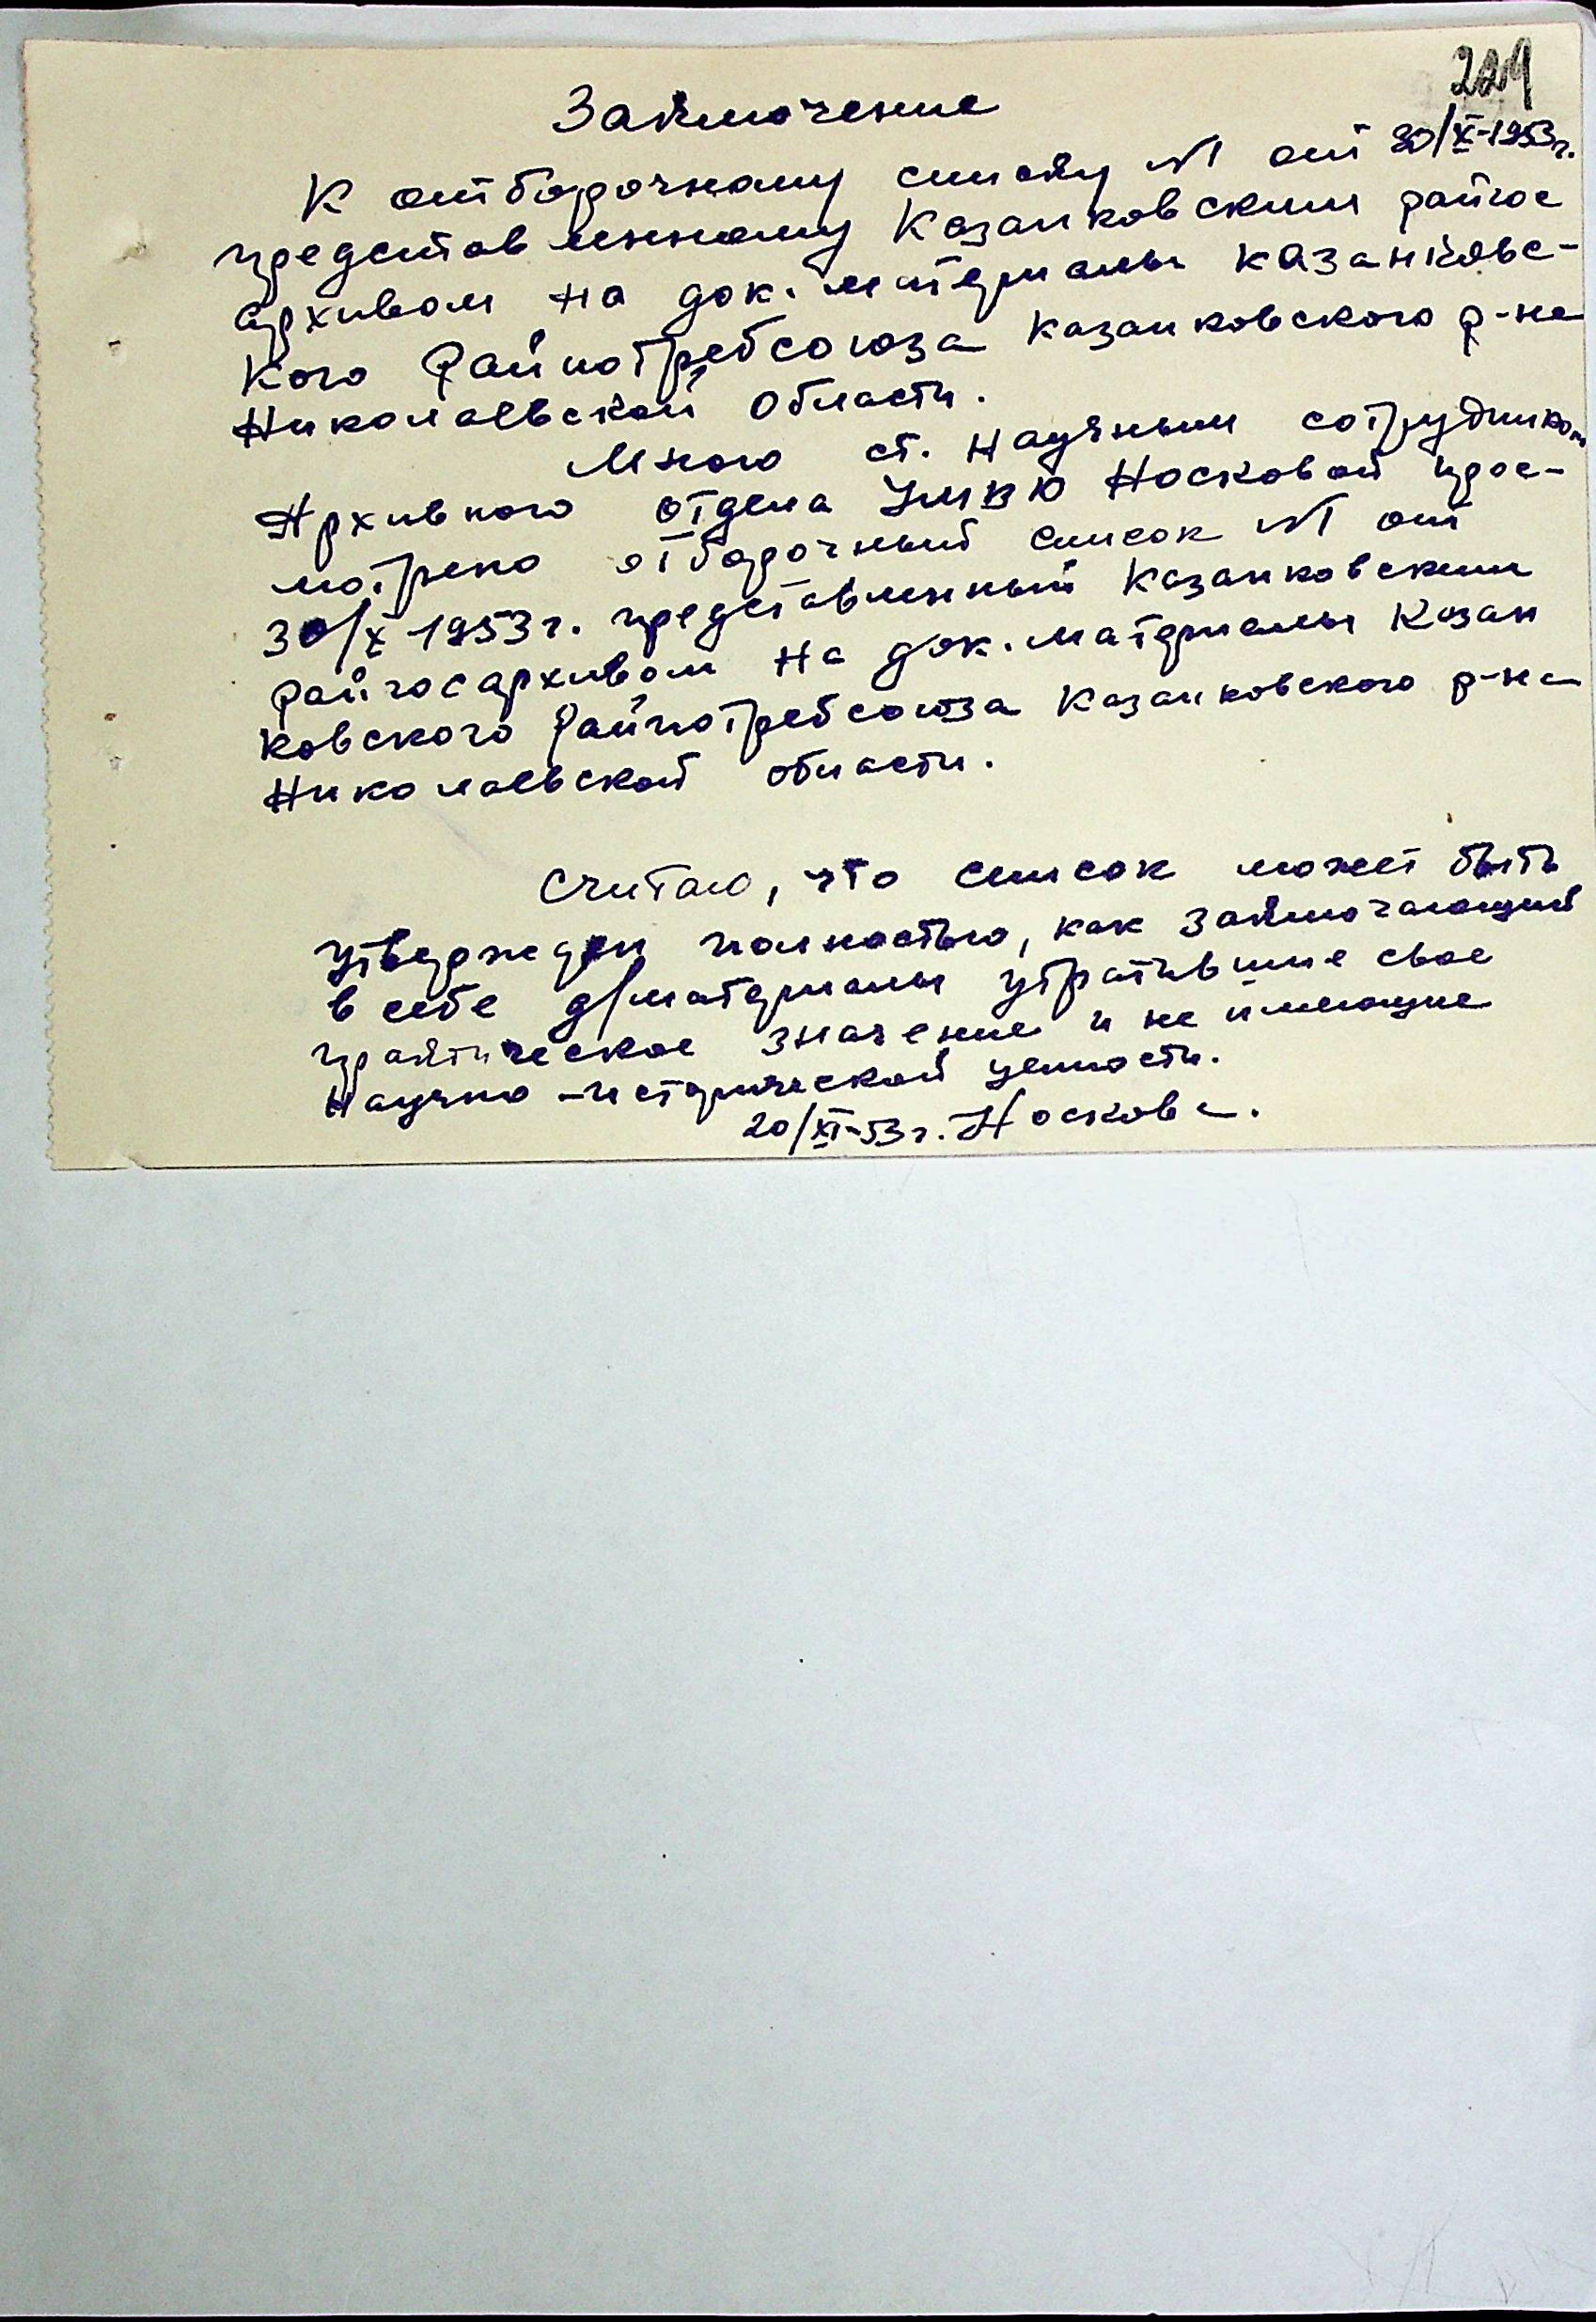 229
Заключение
К отборочному списку №1 от 30/X-1953г.
представленному Казанковским райгос
архивом на док. материалы Казанковс-
кого Райпотребсоюза Казанковского р-на
Николаевской области.
Мною ст. научным сотрудником
Архивного отдела УМВЮ Носковой прос-
мотрено отборочный список №1 от
30/X 1953г. представленный Казанковским
райгосархивом на док. материалы Казан
ковского Райпотребсоюза Казанковского р-на
Николаевской области.
Считаю, что список может быть
утвержден полностью, как заключающий
в себе д/материалы утратившие свое
практическое значение и не имеющие
научно-исторической ценности.
20/XI-53г. Носкова.